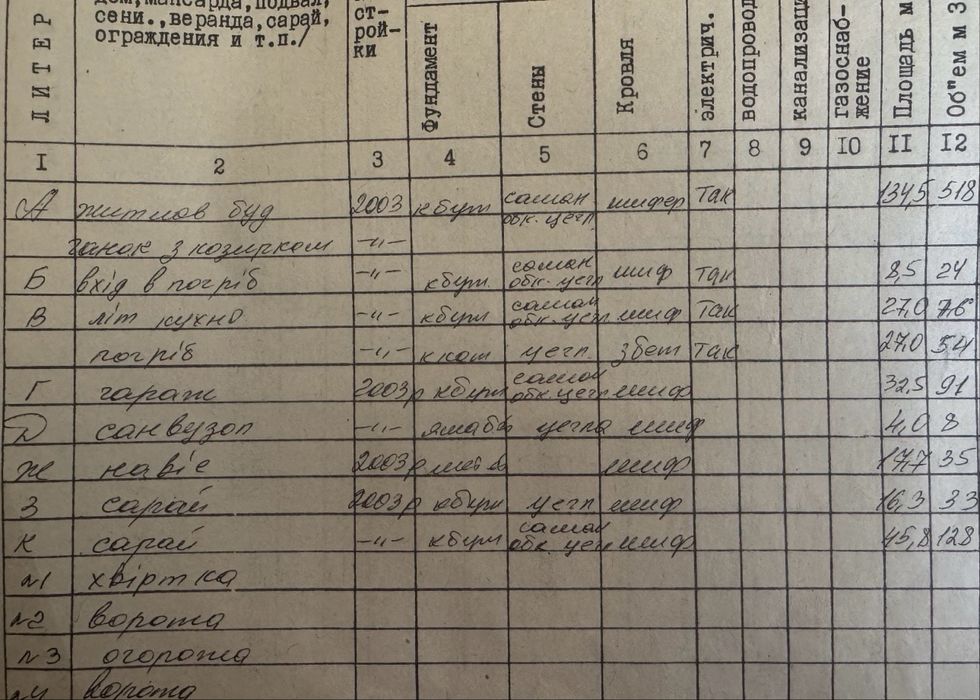 дом, мансарда, подвал,
сени., веранда, сарай,
ограждения и т.п./
ЛИТЕР
ст-
рой-
ки
Фундамент
Стены
Кровля
электрич.
водопровод
канализац
газоснаб-
жение
Площадь м
Об"ем м 3
I 2 3 4 5 6 7 8 9 I0 II I2
А житлов буд 2003 кбут саман обк. цегл. шифер так 134,5 518
ганок з козирком -"-
Б вхід в погріб -"- кбут саман обк. цегл шиф так 8,5 24
В літ кухно -"- кбут саман обк. цегл шиф так 27,0 76
погріб -"- цегл. збет так 27,0 54
Г гараж 2003р кбут саман обк. цегл шиф 32,5 91
Д санвузол -"- цегла шиф 4,0 8
Ж навіс 2003р шиф 17,7 35
З сарай 2003р кбут цегл шиф 16,3 33
К сарай -"- кбут саман обк. цегл шиф 45,8 128
№1 хвіртка
№2 ворота
№3 огорожа
№4 ворота